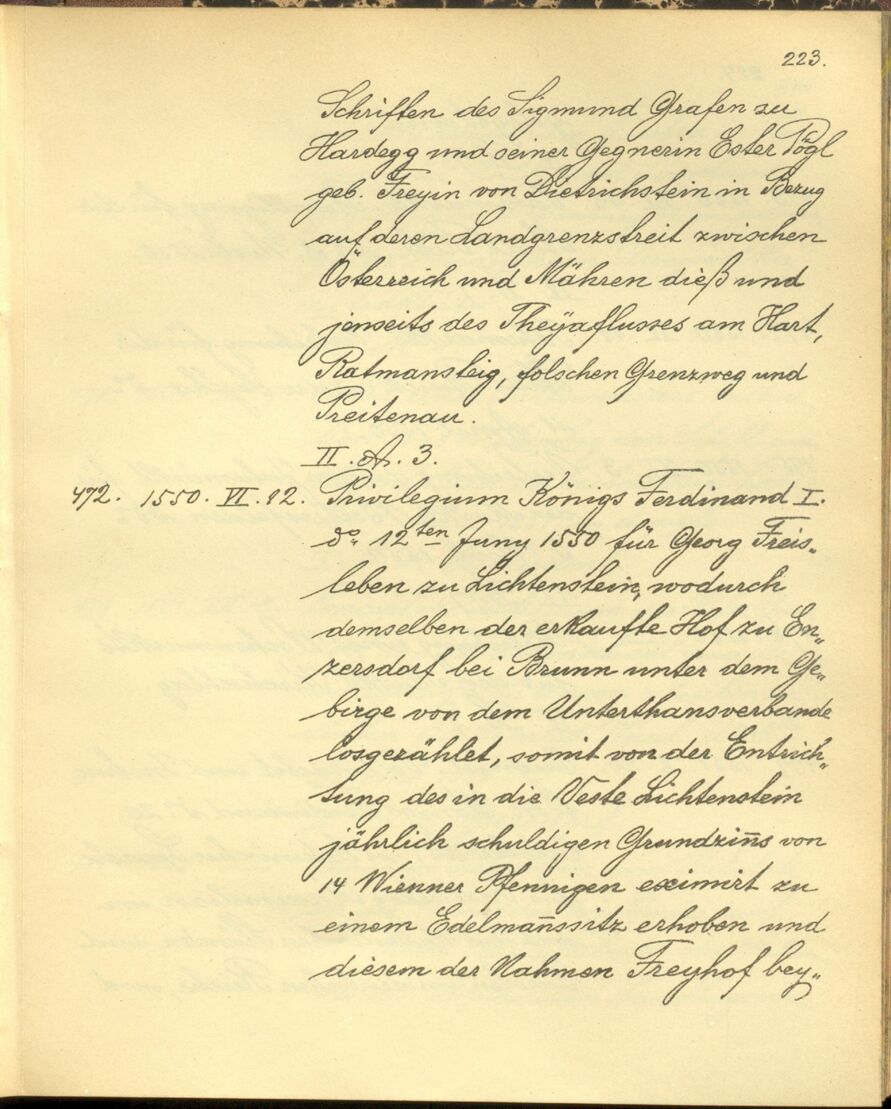 223.
Schriften des Sigmund Grafen zu
Hardegg und seiner Gegnerin Ester Pögl
geb. Freyin von Dietrichstein in Bezug
auf deren Landgrenzstreit zwischen
Österreich und Mähren dieß und
jenseits des Theÿaflusses am Hart,
Ratmansteig, folschen Grenzweg und
Preitenau.
II. A. 3.
472. 1550. VI. 12. Privilegium Königs Ferdinand I.
do 12ten Juny 1550 für Georg Freis„
leben zu Lichtenstein, wodurch
demselben der erkaufte Hof zu En„
zersdorf bei Brunn unter dem Ge„
birge von dem Unterthansverbande
losgezählet, somit von der Entrich„
tung des in die Veste Lichtenstein
jährlich schuldigen Grundzin̄s von
14 Wienner Pfennigen eximirt zu
einem Edelman̄ssitz erhoben und
diesem der Nahmen Freyhof bey„